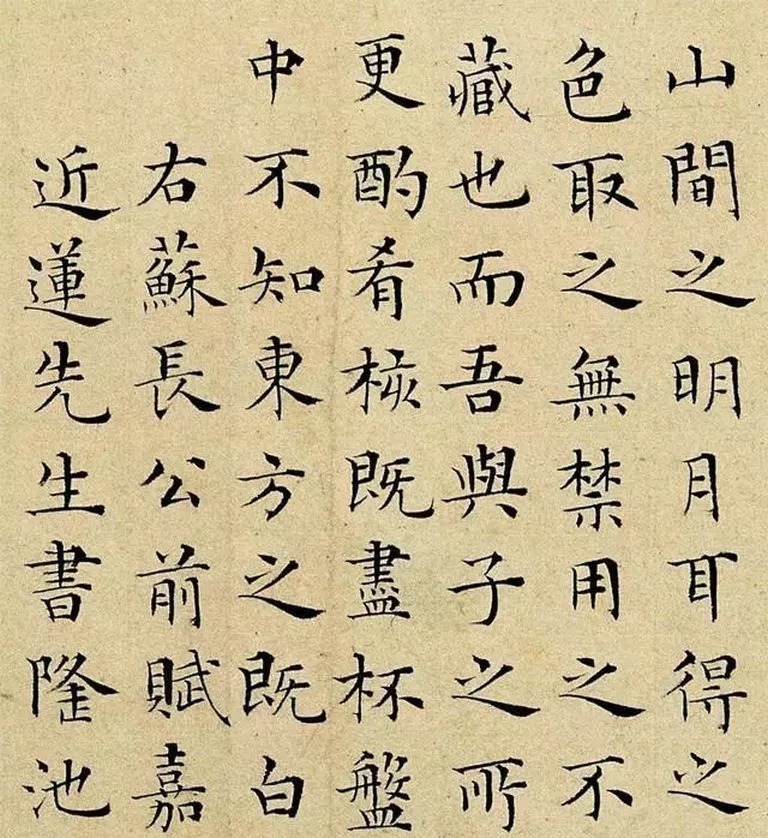 山間之明月耳得之
色取之無禁用之不
藏也而吾與子之所
更酌肴核既盡杯盤
中不知東方之既白
右蘇長公前賦嘉
近蓮先生書隆池